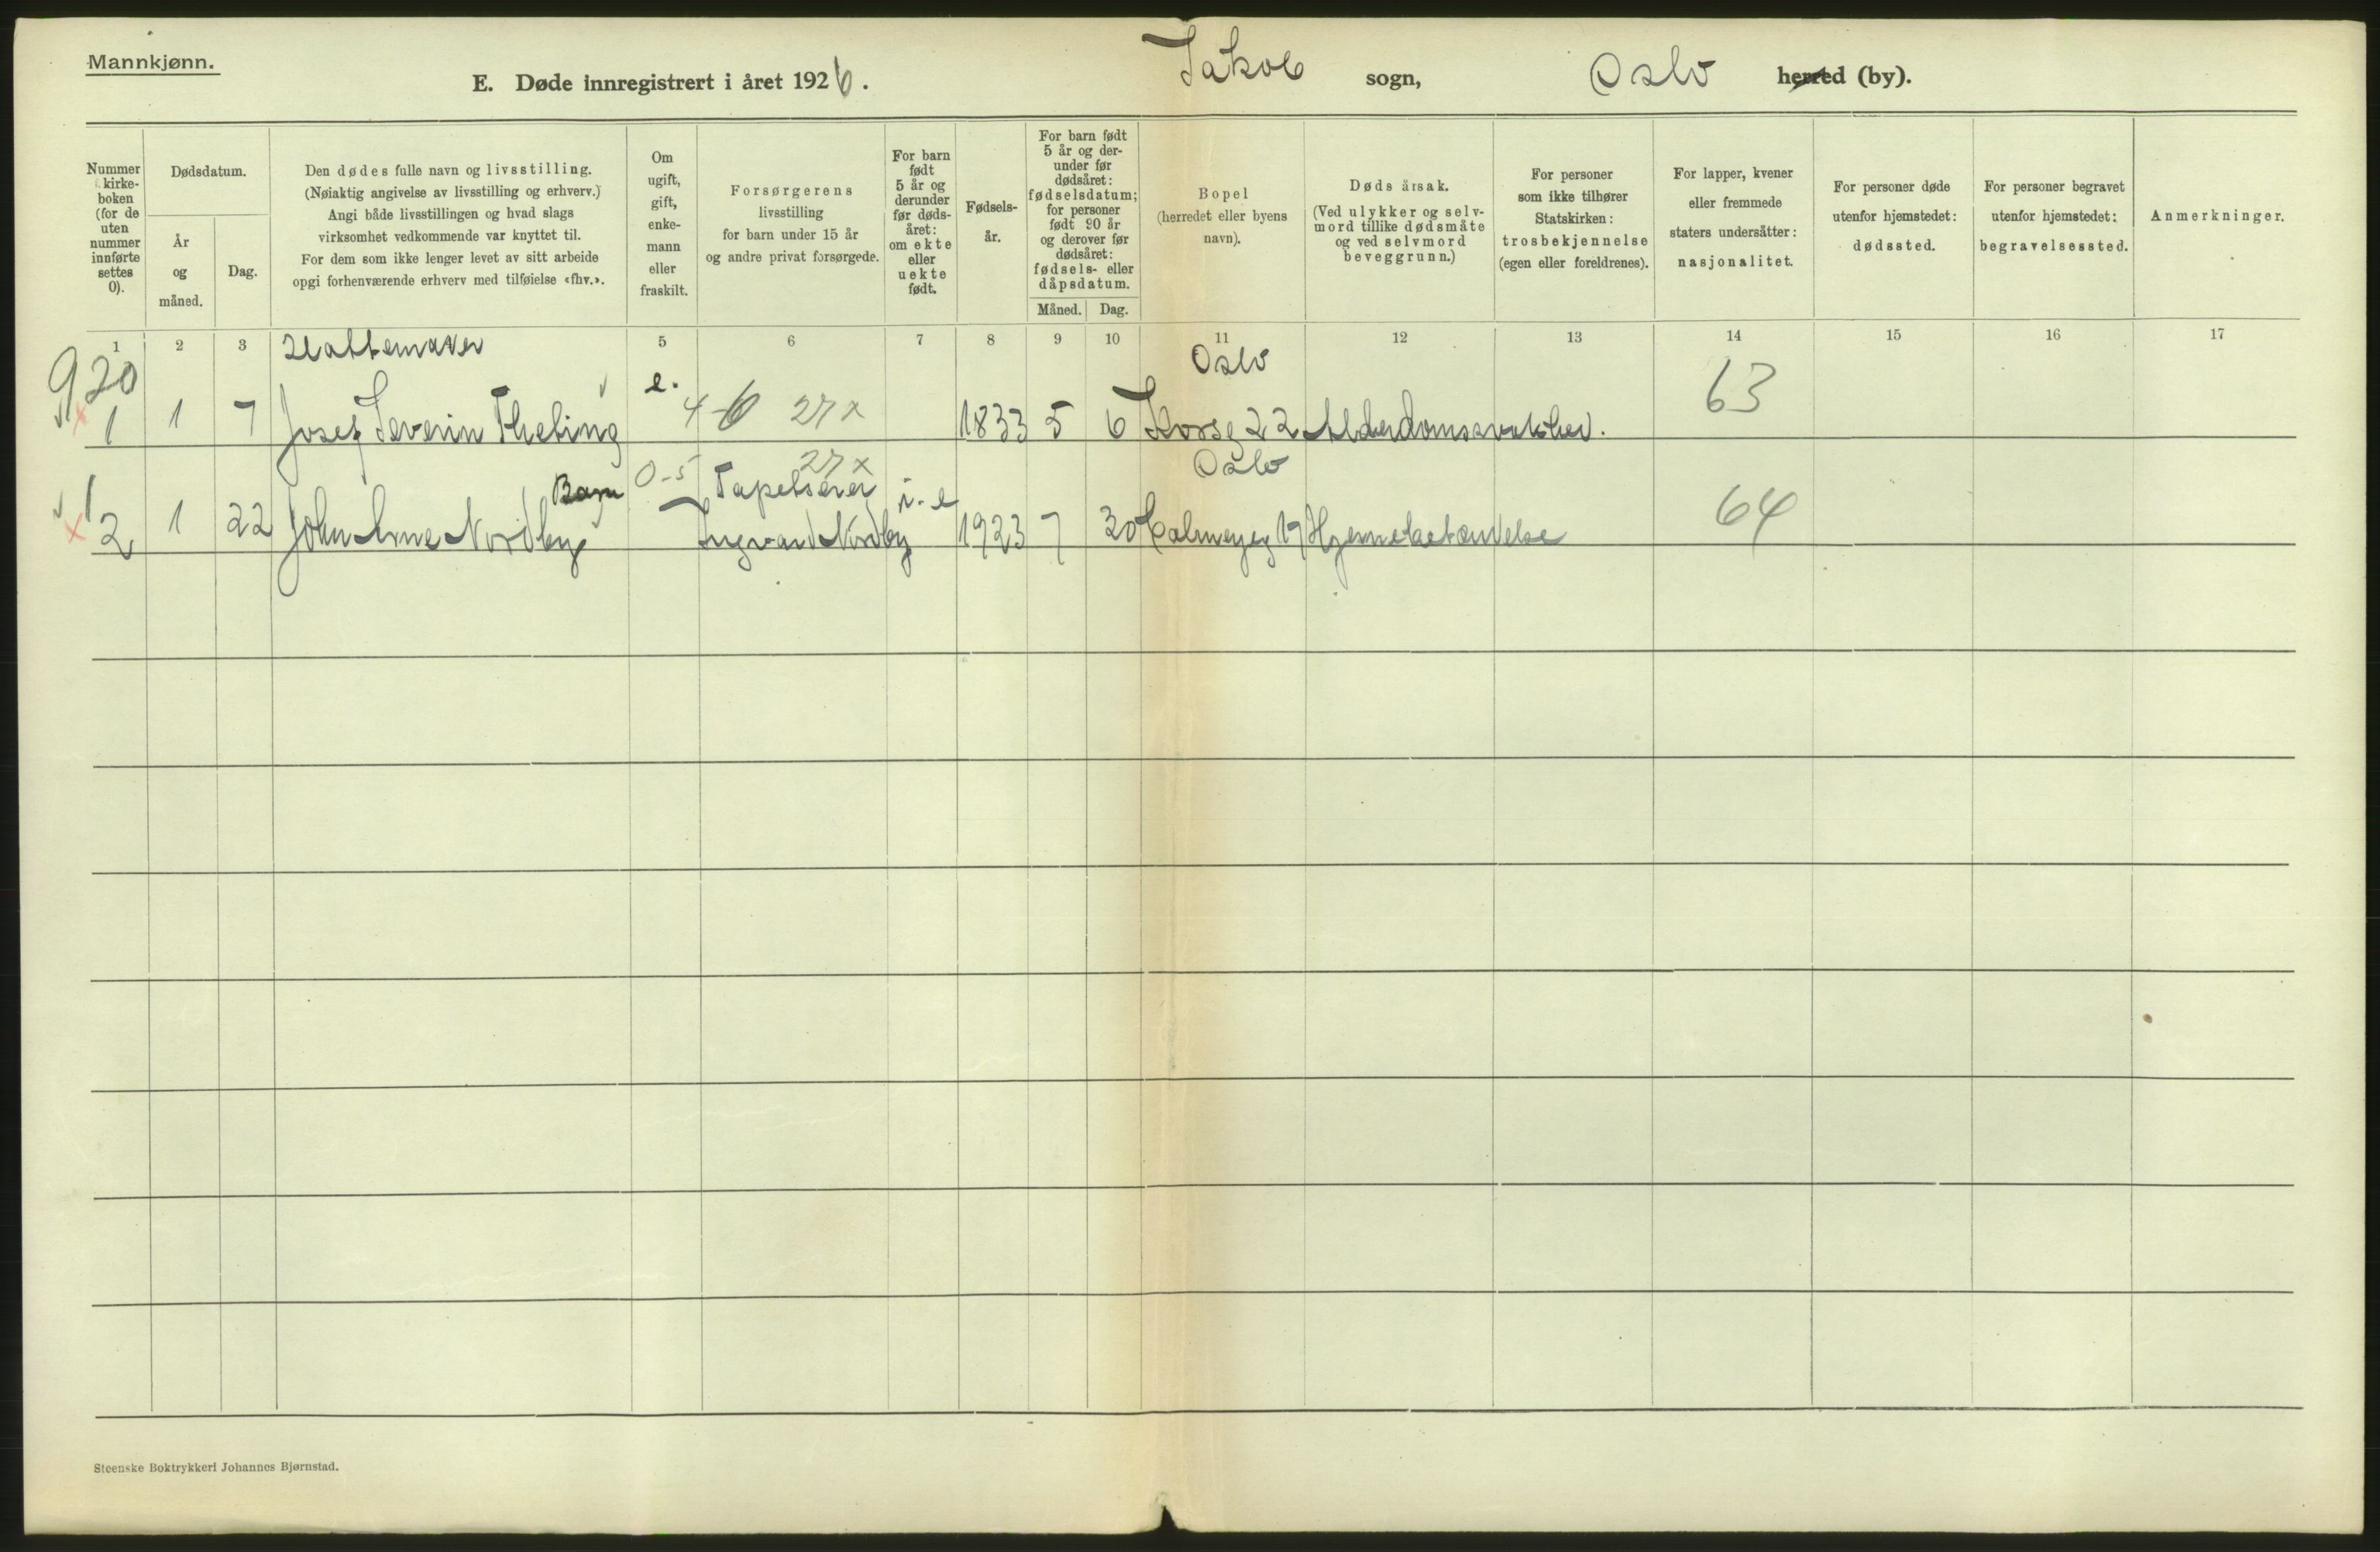 Mannkjønn.
E. Døde innregistrert i året 1926. Jakob sogn, Oslo herred (by).
Nummer
kirke-
boken
(for de
uten
nummer
innførte
settes
0).
Dødsdatum.
År
og
måned.
Dag.
Den dødes fulle navn og livsstilling.
(Nøiaktig angivelse av livsstilling og erhverv.)
Angi både livsstillingen og hvad slags
virksomhet vedkommende var knyttet til.
For dem som ikke lenger levet av sitt arbeide
opgi forhenværende erhverv med tilføielse «fhv.».
Om
ugift,
gift,
enke-
mann
eller
fraskilt.
Forsørgerens
livsstilling
for barn under 15 år
og andre privat forsørgede.
For barn
født
5 år og
derunder
før døds-
året:
om ekte
eller
uekte
født.
Fødsels-
år.
For barn født
5 år og der-
under før
dødsåret:
fødselsdatum;
for personer
født 90 år
og derover før
dødsåret:
fødsels- eller
dåpsdatum.
Måned. Dag.
Bopel
(herredet eller byens
navn).
Døds årsak.
(Ved ulykker og selv-
mord tillike dødsmåte
og ved selvmord
beveggrunn.)
For personer
som ikke tilhører
Statskirken:
trosbekjennelse
(egen eller foreldrenes).
For lapper, kvener
eller fremmede
staters undersåtter:
nasjonalitet.
For personer døde
utenfor hjemstedet:
dødssted.
For personer begravet
utenfor hjemstedet:
begravelsessted.
Anmerkninger.
1 2 3 5 6 7 8 9 10 11 12 13 14 15 16 17
Hattemaker Oslo
920 e. 4-6 27x 63
1 1 7 Josef Severin Thebing 1833 5 6 Korsg 22 Alderdomssvakhed.
Barn 0-5 Tapetserer 27x i.e Oslo 64
2 1 22 John Arne Nordby Ingvard Nordby 1923 7 30 Calmeyerg 19 Hjernebetændelse
Steenske Boktrykkeri Johannes Bjørnstad.